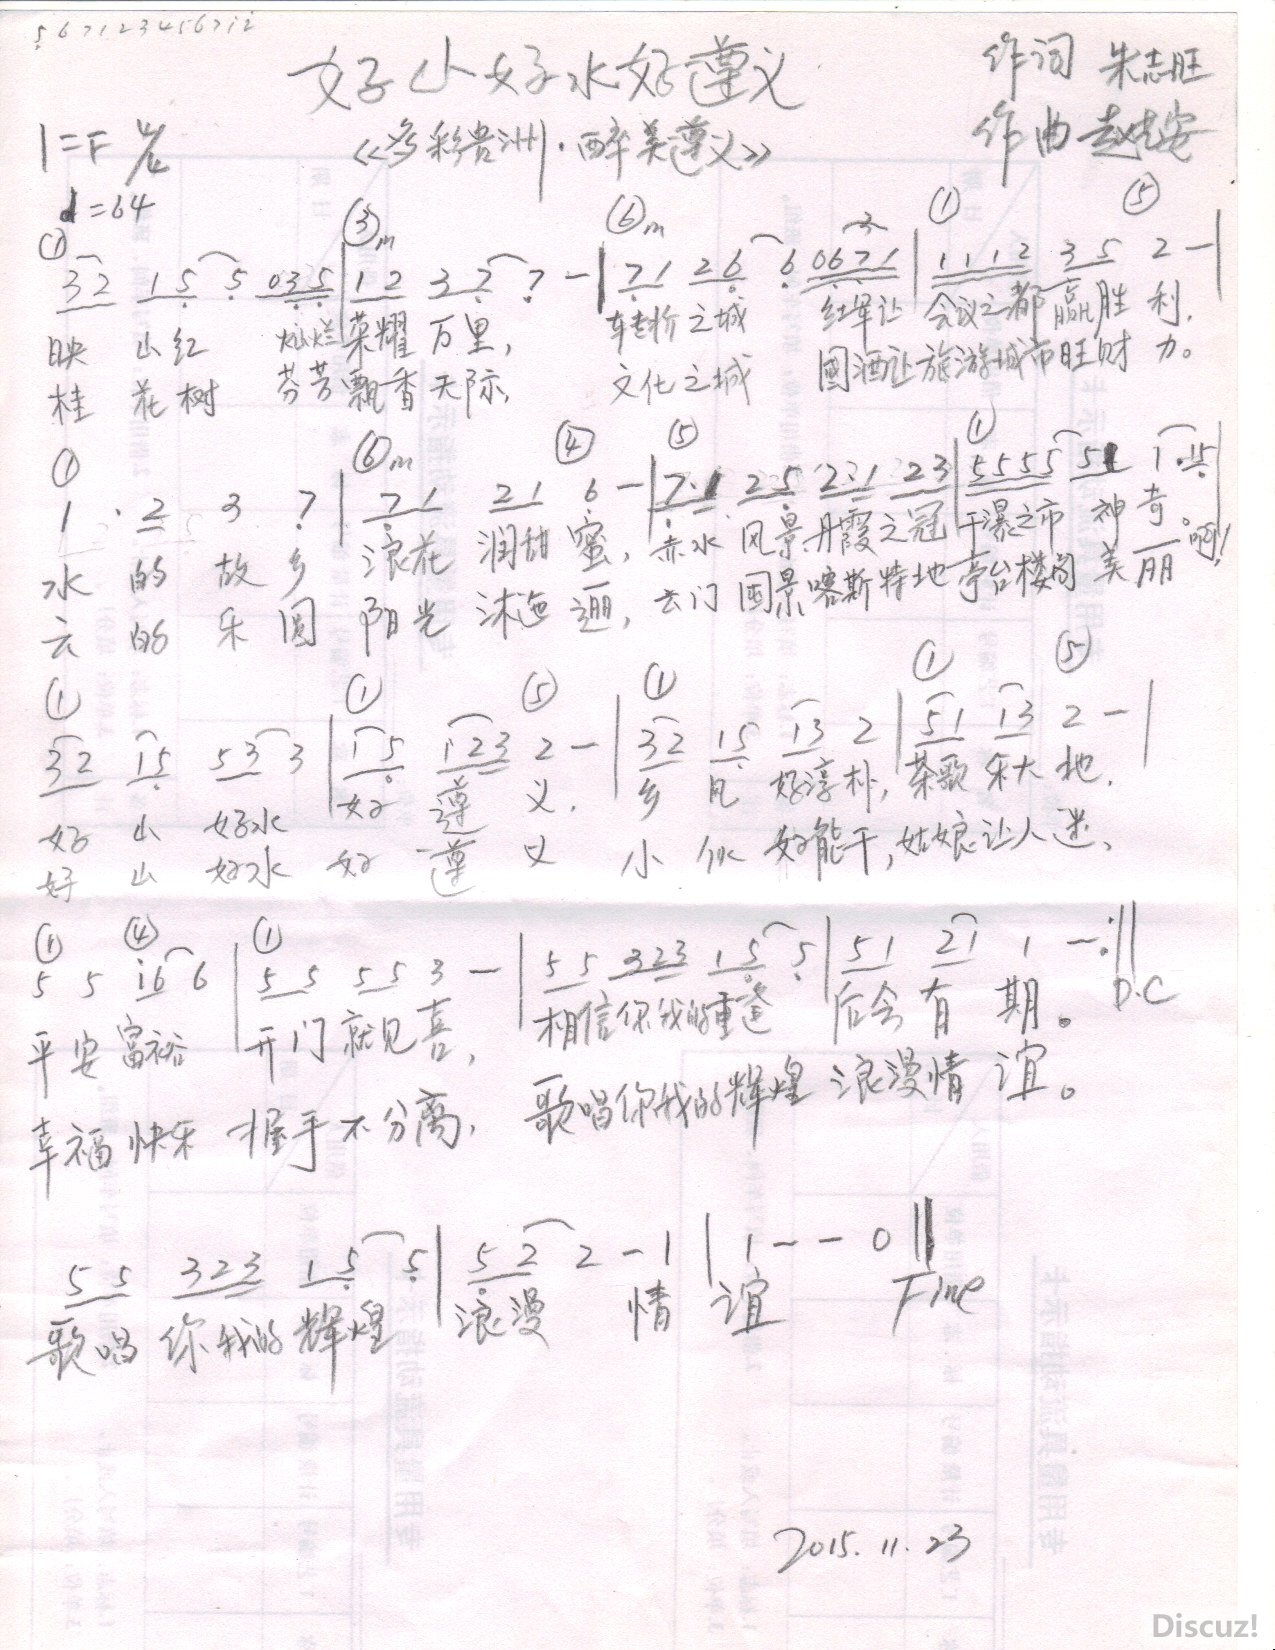 5 6 7 1 2 3 4 5 6 7 1 2
好山好水好遵义
作词 朱志旺
1=F 4/4
《多彩贵洲·醉美遵义》
作曲 赵
♩=64
① ③m ⑥m ① ⑤
32 15 5 035 | 12 3 7 7 - | 71 26 6 0671 | 1112 35 2 - |
映 山红 灿烂荣耀 万里, 转折之城 红军让 会议之都 赢胜利,
桂 花树 芬芳飘香天际, 文化之城 國酒让旅游城市旺财 力。
① ⑥m ④ ⑤ ①
1 · 2 3 7 | 71 21 6 - | 7·1 25 2·1 23 | 5555 51 1·15 |
水 的 故 乡 浪花 润甜 蜜, 赤水 风景丹霞之冠 千瀑之市 神 奇。啊!
云 的 乐 園 阳光 沐 , 云门 囤景喀斯特地 亭台楼阁 美 丽
① ① ⑤ ① ① ⑤
32 15 53 3 | 15 123 2 - | 32 15 13 2 | 51 13 2 - |
好 山 好水 好 遵 义, 乡 风 好淳朴, 茶歌 乐大 地,
好 山 好水 好 遵 义 小 伙 好能干, 姑娘让人 迷、
① ④ ①
5 5 i6 6 | 55 55 3 - | 55 323 15 5 | 51 21 1 - :||
平 安 富裕 开门 就见喜, 相信你我的重逢 后会 有 期。 D.C
幸福 快乐 握手 不分离, 歌唱你我的辉煌 浪漫情 谊。
55 323 15 5 | 52 2 - 1 | 1 - - 0 ||
歌唱 你我的辉煌 浪漫 情 谊 Fine
2015.11.23
Discuz!